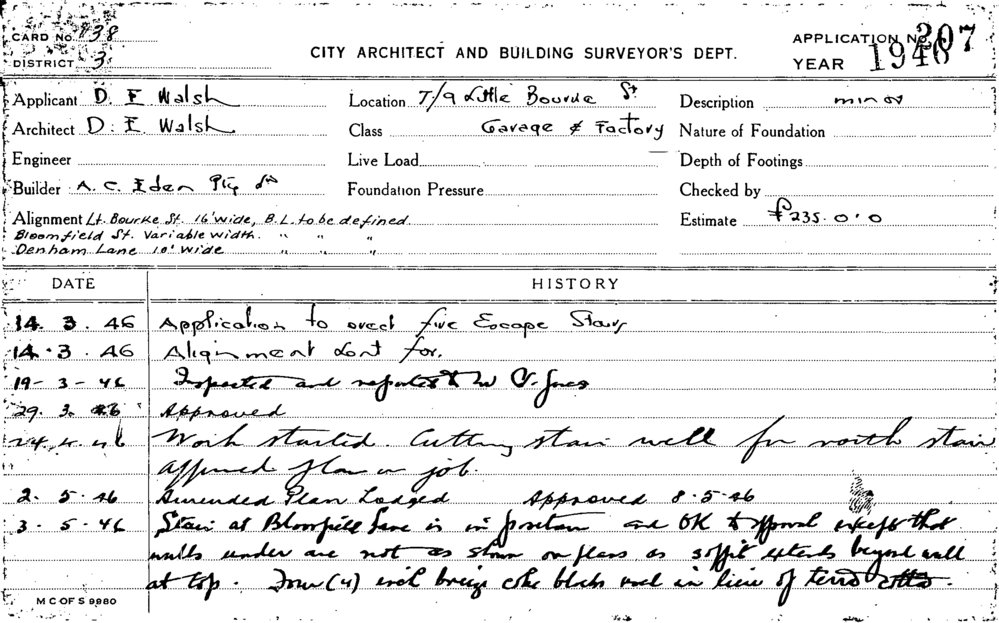 CARD No. 938
DISTRICT 3
CITY ARCHITECT AND BUILDING SURVEYOR'S DEPT.
APPLICATION No. 207
YEAR 1946
Applicant D. E Walsh Location 7/9 Little Bourke St. Description minor
Architect D. E. Walsh Class Garage & Factory Nature of Foundation
Engineer Live Load Depth of Footings
Builder A. C. Eden Pty Ltd Foundation Pressure Checked by
Alignment Lt. Bourke St. 16' wide, B.L. to be defined. Estimate £235.0.0
Bloomfield St. Variable width. " " "
Denham Lane 10' wide " " "
DATE HISTORY
14. 3. 46 Application to erect fire Escape Stairs
14. 3. 46 Alignment sent for.
19-3-46 Inspected and reported to Mr Jones
29. 3. 46 Approved
24. 4. 46 Work started. Cutting stair well for north stair
approved plan on job.
2. 5. 46 Amended Plan Lodged Approved 8-5-46
3. 5. 46 Stair at Lane is in position and OK to approval except that
walls under are not as shown on plans as soffit extends beyond wall
at top. Four (4) inch breeze coke blocks used in lieu of terra cotta.
M C OF S 9880